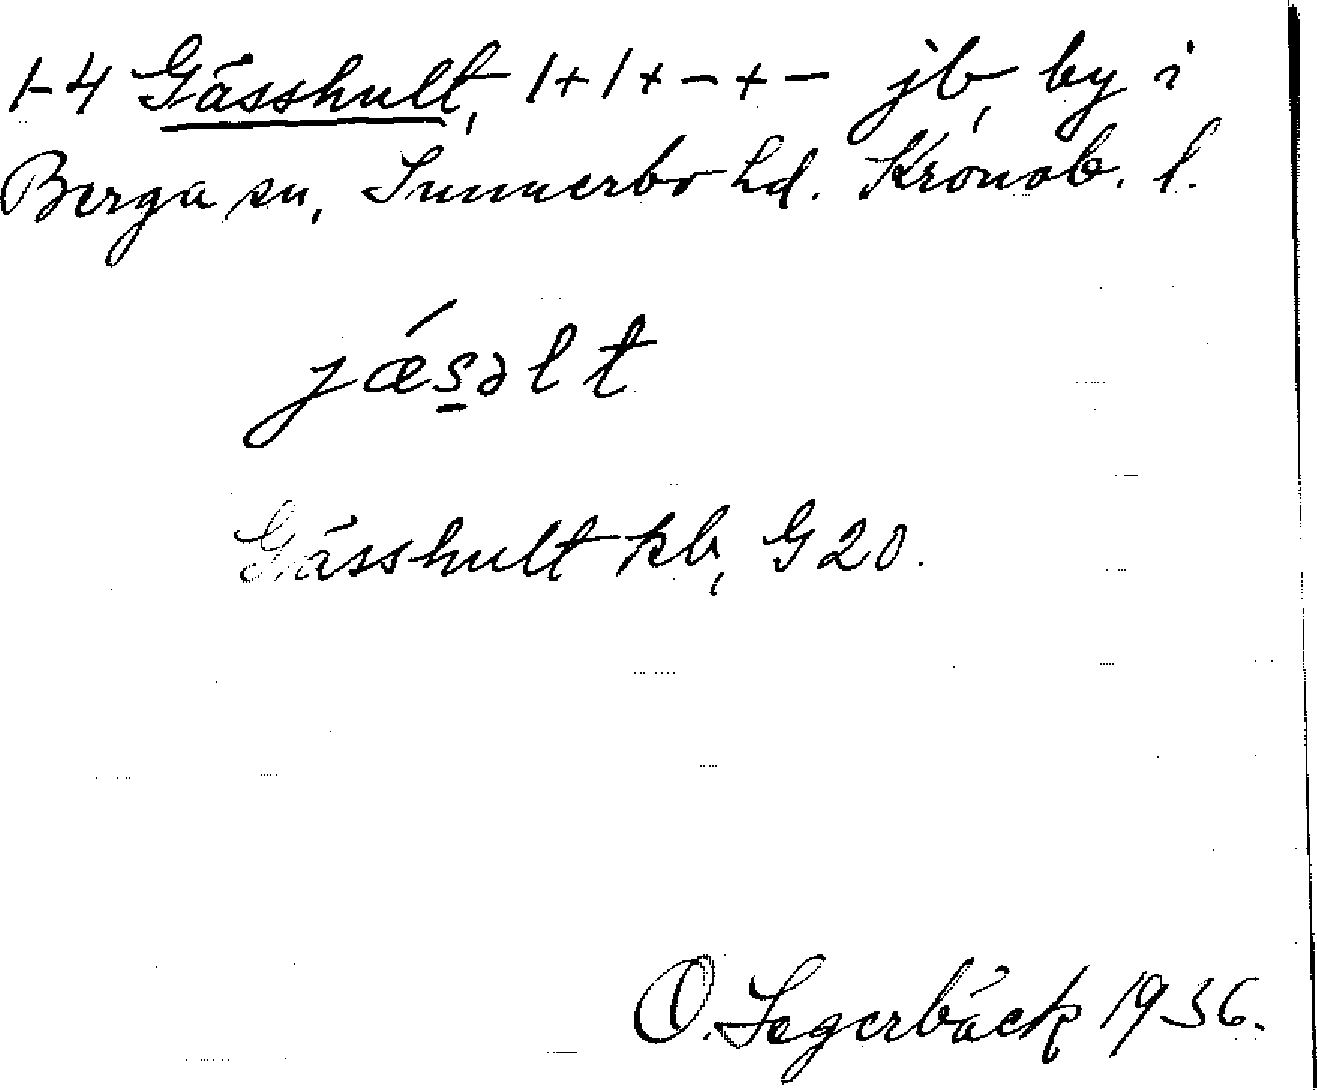 1-4 Gässhult, 1+1+–+– jb, by i
Berga sn, Sunnerbo hd. Kronob. l.
jǽs̱əlt
Gässhult kb, G 20.
O. Segerbäck 1936.